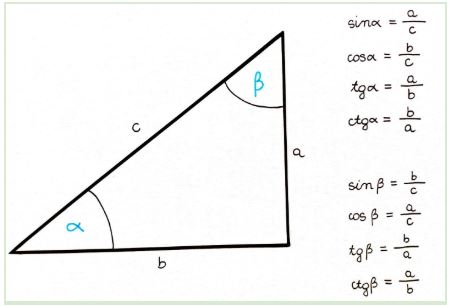 sinα = a/c
cosα = b/c
tgα = a/b
ctgα = b/a
β
c
a
α
b
sinβ = b/c
cosβ = a/c
tgβ = b/a
ctgβ = a/b